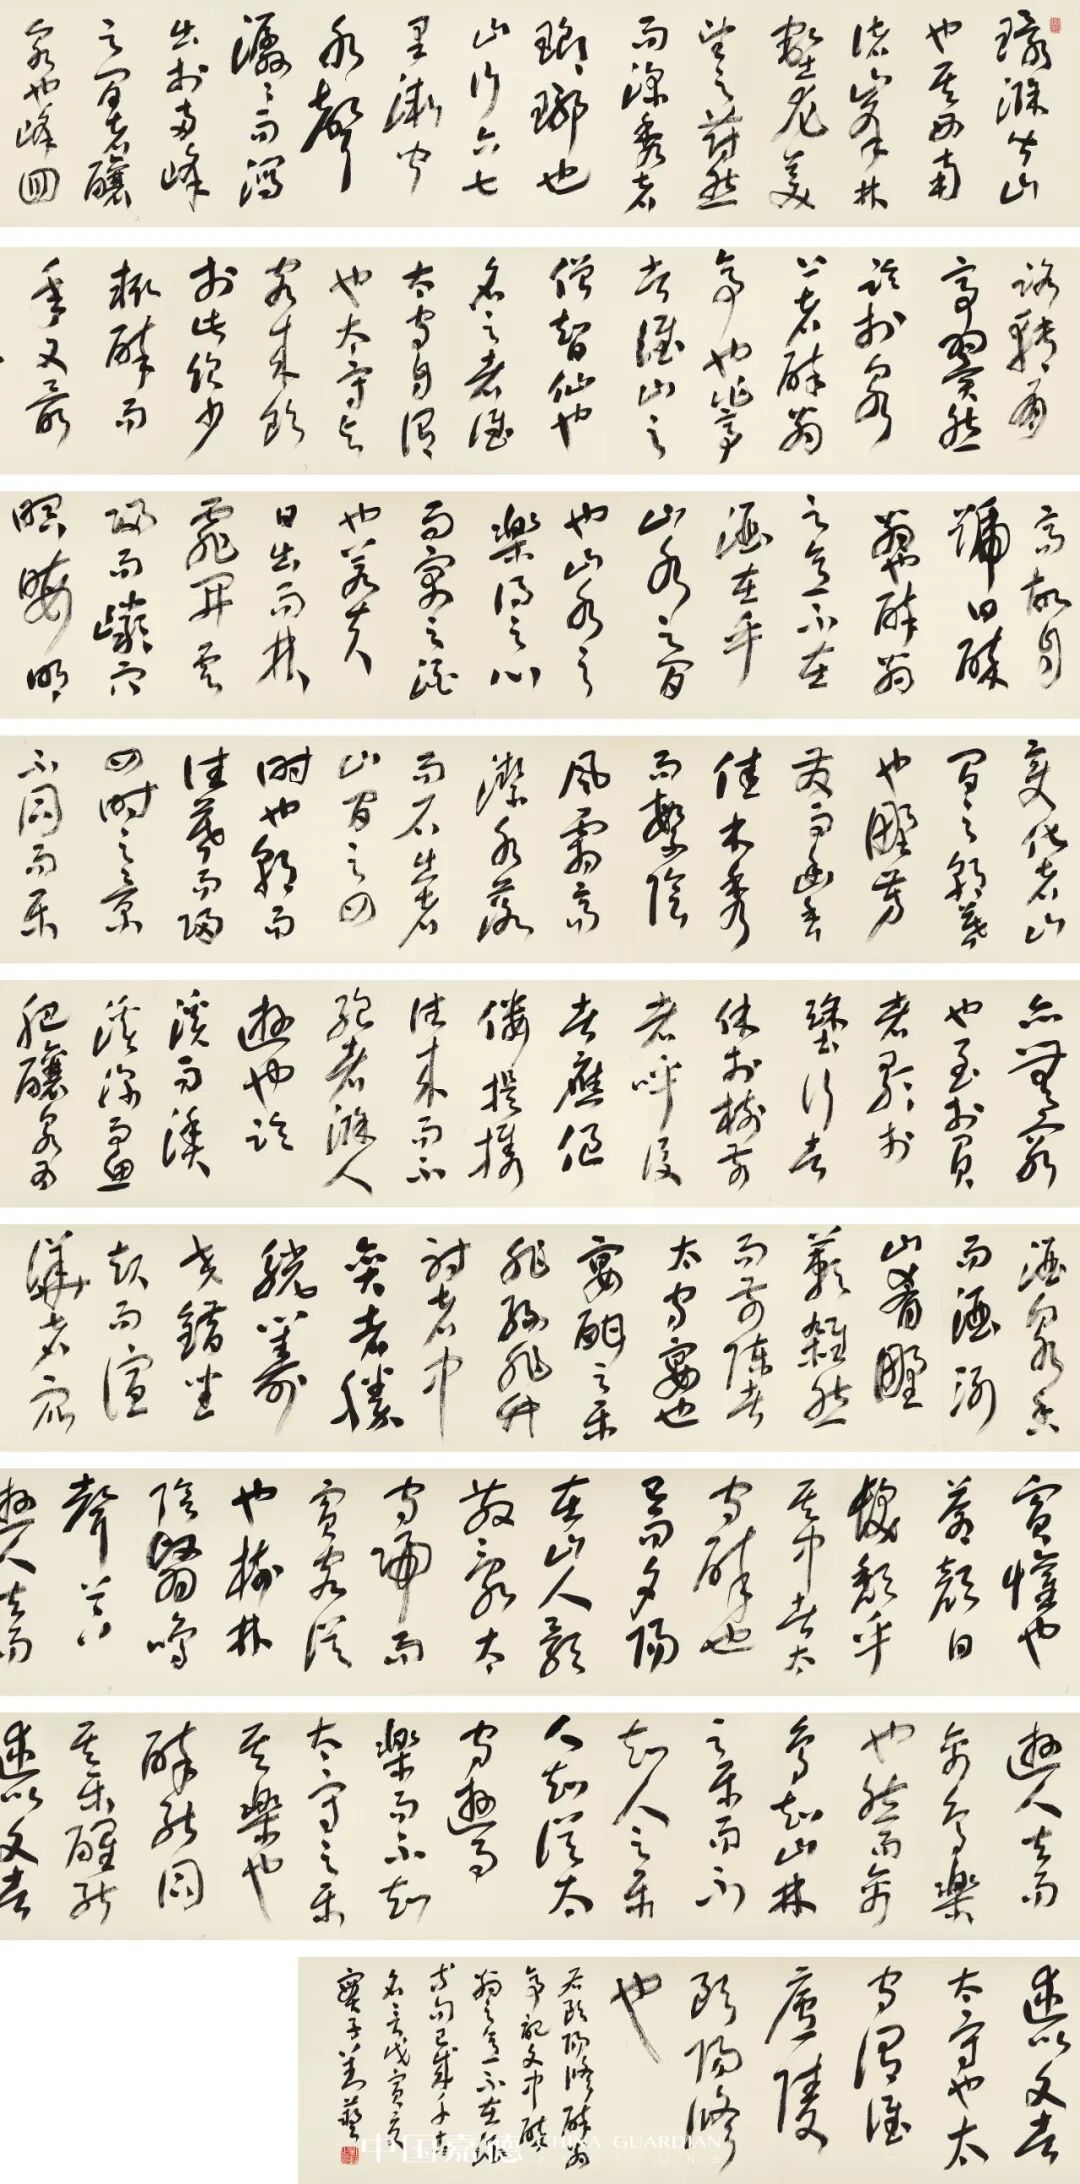 環滁皆山
也其西南
諸峰林
壑尤美
望之蔚然
而深秀者
瑯琊也
山行六七
里漸聞
水聲
潺潺而瀉
出於兩峰
之間者釀
泉也峰回
路轉有
亭翼然
臨於泉
上者醉翁
亭也作亭
者誰山之
僧智仙也
名之者誰
太守自謂
也太守與
客來飲
於此飲少
輒醉而
年又最
高故自
號曰醉
翁也醉翁
之意不在
酒在乎
山水之間
也山水之
樂得之心
而寓之酒
也若夫
日出而林
霏開雲
歸而巖穴
暝晦明
變化者山
間之朝暮
也野芳
發而幽香
佳木秀
而繁陰
風霜高
潔水落
而石出者
山間之四
時也朝而
往暮而歸
四時之景
不同而樂
亦無窮
也至於負
者歌於
塗行者
休於樹前
者呼後
者應傴
僂提攜
往來而不
絕者滁人
遊也臨
溪而漁
溪深而魚
肥釀泉為
酒泉香
而酒洌
山肴野
蔌雜然
而前陳者
太守宴也
宴酣之樂
非絲非竹
射者中
弈者勝
觥籌
交錯坐
起而諠
譁者眾
賓懽也
蒼顏白
髮頹乎
其中者太
守醉也
已而夕陽
在山人影
散亂太
守歸而
賓客從
也樹林
陰翳鳴
聲上下
遊人去而
遊人去而
禽鳥樂
也然而禽
鳥知山林
之樂而不
知人之樂
人知從太
守遊而
樂而不知
太守之樂
其樂也
醉能同
其樂醒能
述以文者
述以文者
太守也太
守謂誰
廬陵
歐陽修
也
右歐陽修醉翁
亭記文中醉
翁之意不在酒
句已成千古
名言戊寅夏
中国嘉德 CHINA GUARDIAN
AUCTIONS